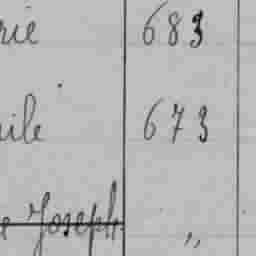 rie 683
ile 673
Joseph "